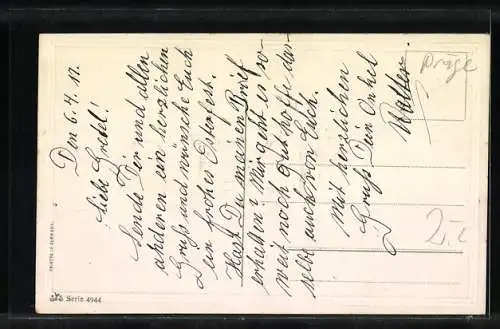 Den 6.4.17.
Liebe Gretel!
Sende Dir und allen
anderen ein herzlichen
Gruss und wünsche Euch
ein frohes Osterfest.
Hast Du meinen Brief
erhalten? Mir geht es so-
weit noch gut hoffe das-
selbe auch von Euch.
Mit herzlichen
Gruß Dein Onkel
Walther.
Präge
2.-
PRINTED IN GERMANY.
Serie 4944